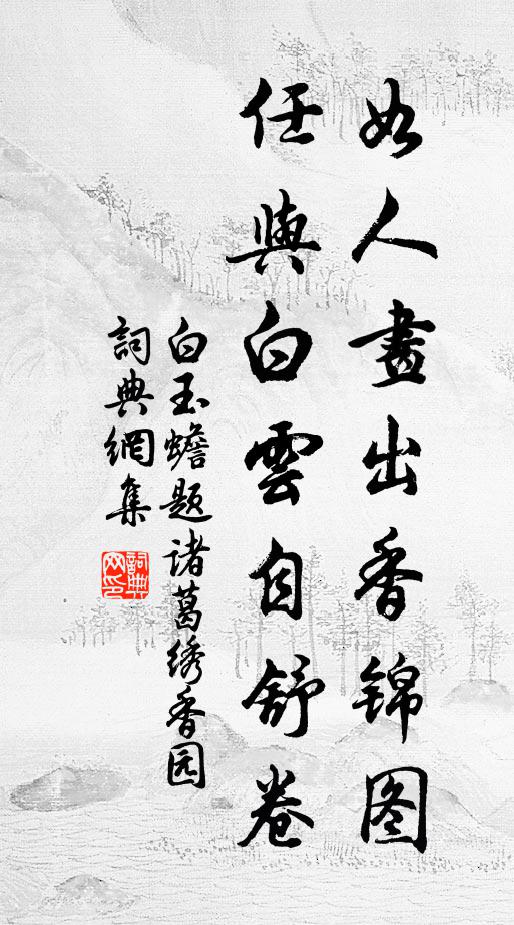 如人畫出香锦图
任與白雲自舒卷
白玉蟾题诸葛绣香园
詞典網集
詞典网印